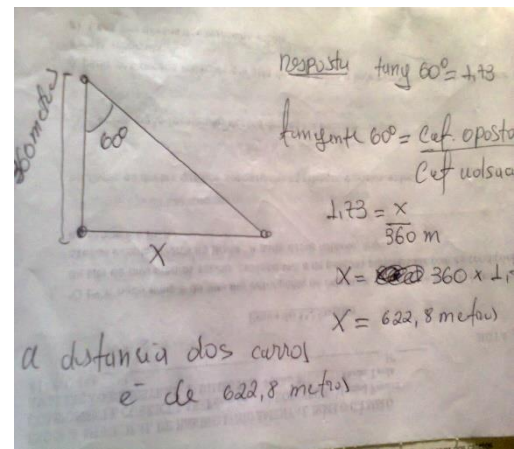 360 metros
60º
X
Resposta tang 60º = 1,73
tangente 60º = Cat. oposto
Cat
1,73 = X
360 m
X = 360 x 1,
X = 622,8 metros
a distancia dos carros
é de 622,8 metros